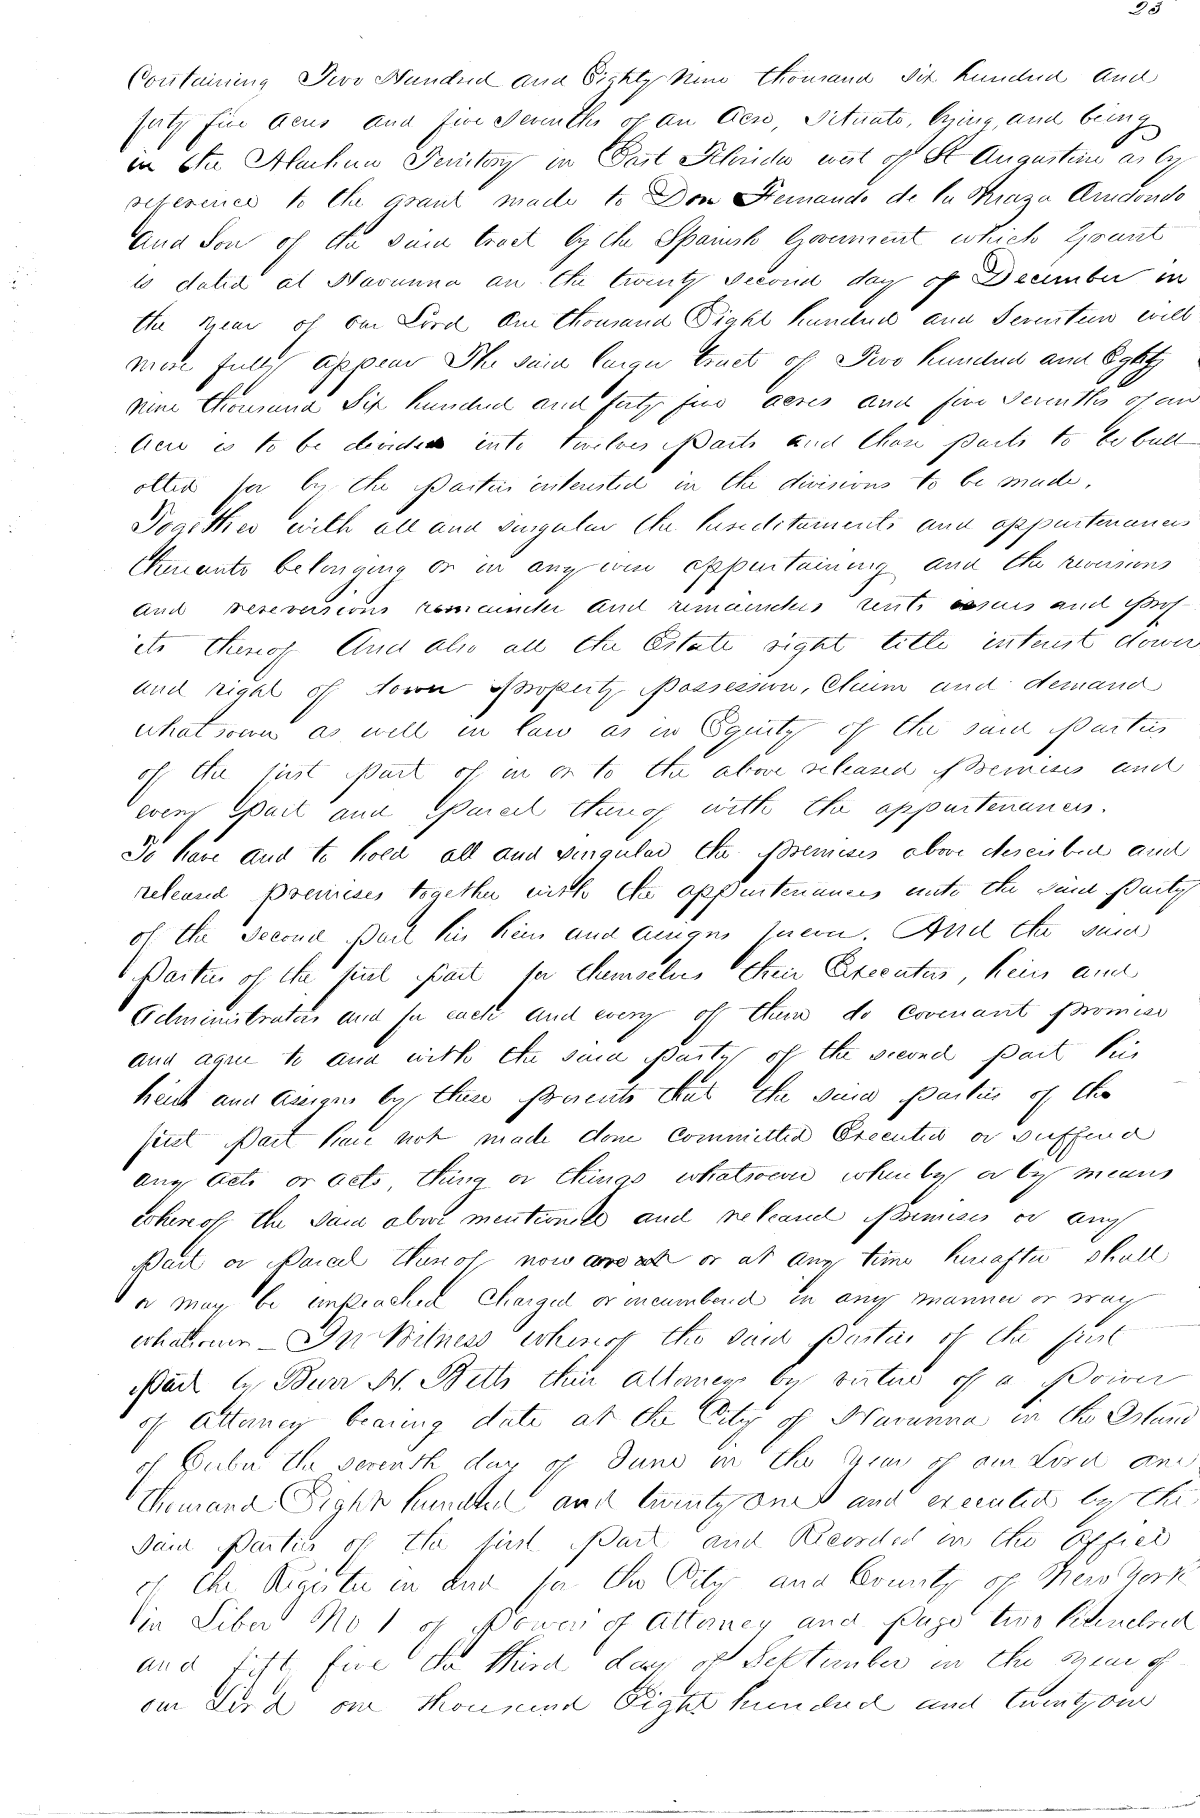 23
Containing Two Hundred and Eighty Nine thousand six hundred and
forty five acres and five sevenths of an Acre, situate, lying, and being
in the Alachua Territory in East Florida west of St Augustine as by
reference to the grant made to Don Fernando de la Maza Arredondo
and Son of the said tract by the Spanish Goverment which Grant
is dated at Havanna on the twenty second day of December in
the year of our Lord One thousand Eight hundred and Seventeen will
more fully appear The said larger tract of Two hundred and Eighty
nine thousand Six hundred and forty five acres and five sevenths of an
Acre is to be divided into twelves Parts and those parts to be ball
otted for by the Parties interested in the divisions to be made.
Together with all and singular the hereditaments and appurtenances
thereunto belonging or in any wise appurtaining and the reversions
and reseversions remainder and remainders rents issues and prof
its thereof And also all the Estate right title interest dower
and right of dower Property Possession, Claim and demand
whatsoever as well in law as in Equity of the said Parties
of the first Part of in or to the above released Premises and
every Part and Parcel thereof with the appurtenances.
To have and to hold all and singular the Premises above described and
released premises together with the appurtenances unto the said Party
of the second Part his heirs and assigns forever. And the said
Parties of the first Part for themselves their Executors, heirs and
Administrators and for each and every of them do covenant promise
and agree to and with the said Party of the second part his
heirs and assigns by these Presents that the said parties of the
first Part have not made done committed Executed or suffered
any acts or acts, thing or things whatsoever whereby or by means
whereof the said above mentioned and released Premises or any
Part or Parcel thereof now are or at any time hereafter shall
or may be impeached Charged or incumbered in any manner or way
whatsoever _ In Witness whereof the said parties of the first
Part by Burr H. Betts their attorney by virtue of a Power
of attorney bearing date at the City of Havanna in the Island
of Cuba the seventh day of June in the Year of our Lord one
thousand Eight hundred and twenty one and executed by the
said Parties of the first Part and Recorded in the Office
of the Register in and for the City and County of New York
in Liber No 1 of Powers of Attorney and Page two hundred
and fifty five the third day of September in the year of
our Lord one thousand Eight hundred and twenty one